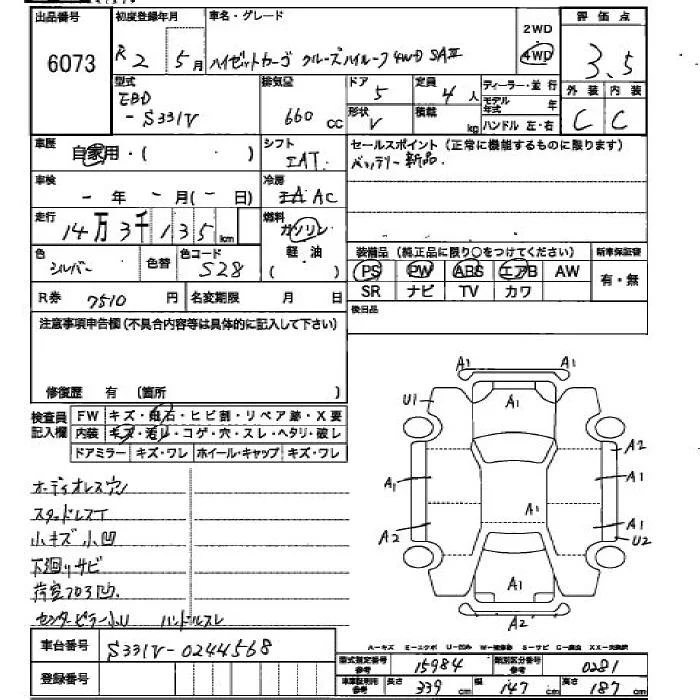 出品番号 初度登録年月 車名・グレード 2WD 評価点
6073 R2 5月 ハイゼットカーゴ クルーズハイルーフ 4WD SAⅢ 4WD 3.5
型式 排気量 ドア 定員 ディーラー・並行 外装 内装
EBD 5 4人 モデル年式 年
-S331V 660cc 形状 V 積載 kg ハンドル 左・右 C C
車歴 シフト セールスポイント(正常に機能するものに限ります)
自家用・( ) IAT バッテリー新品.
車検 冷房
- 年 - 月(- 日) AC
走行 燃料
14万3千135km ガソリン
色 色替 色コード 軽油 装備品(純正品に限り○をつけてください) 新車保証書
シルバー S28 ( ) PS PW ABS エアB AW 有・無
R券 7510円 名変期限 月 日 SR ナビ TV カワ
注意事項申告欄(不具合内容等は具体的に記入して下さい) 後日品
修復歴 有 〔箇所 〕
検査員記入欄 FW キズ・飛石・ヒビ割・リペア跡・X要
内装 キズ・汚レ・コゲ・穴・スレ・ヘタリ・破レ
ドアミラー キズ・ワレ ホイール・キャップ キズ・ワレ
A1 A1
U1 A1
A2
A1 A1
A1
A2 A1
U2
A1
A2
オーディオレス穴
スタッドレスT
小キズ小凹
下廻りサビ
荷室フロア凹.
センターピラー小U ハンドルスレ
A-キズ E-エクボ U-凹み W-補修跡 S-サビ C-腐食 XX-交換済
車台番号 S331V-0244568
型式指定番号 参考 15984 類別区分番号 参考 0281
登録番号
車車証明用 参考 長さ 339cm 幅 147cm 高さ 187cm